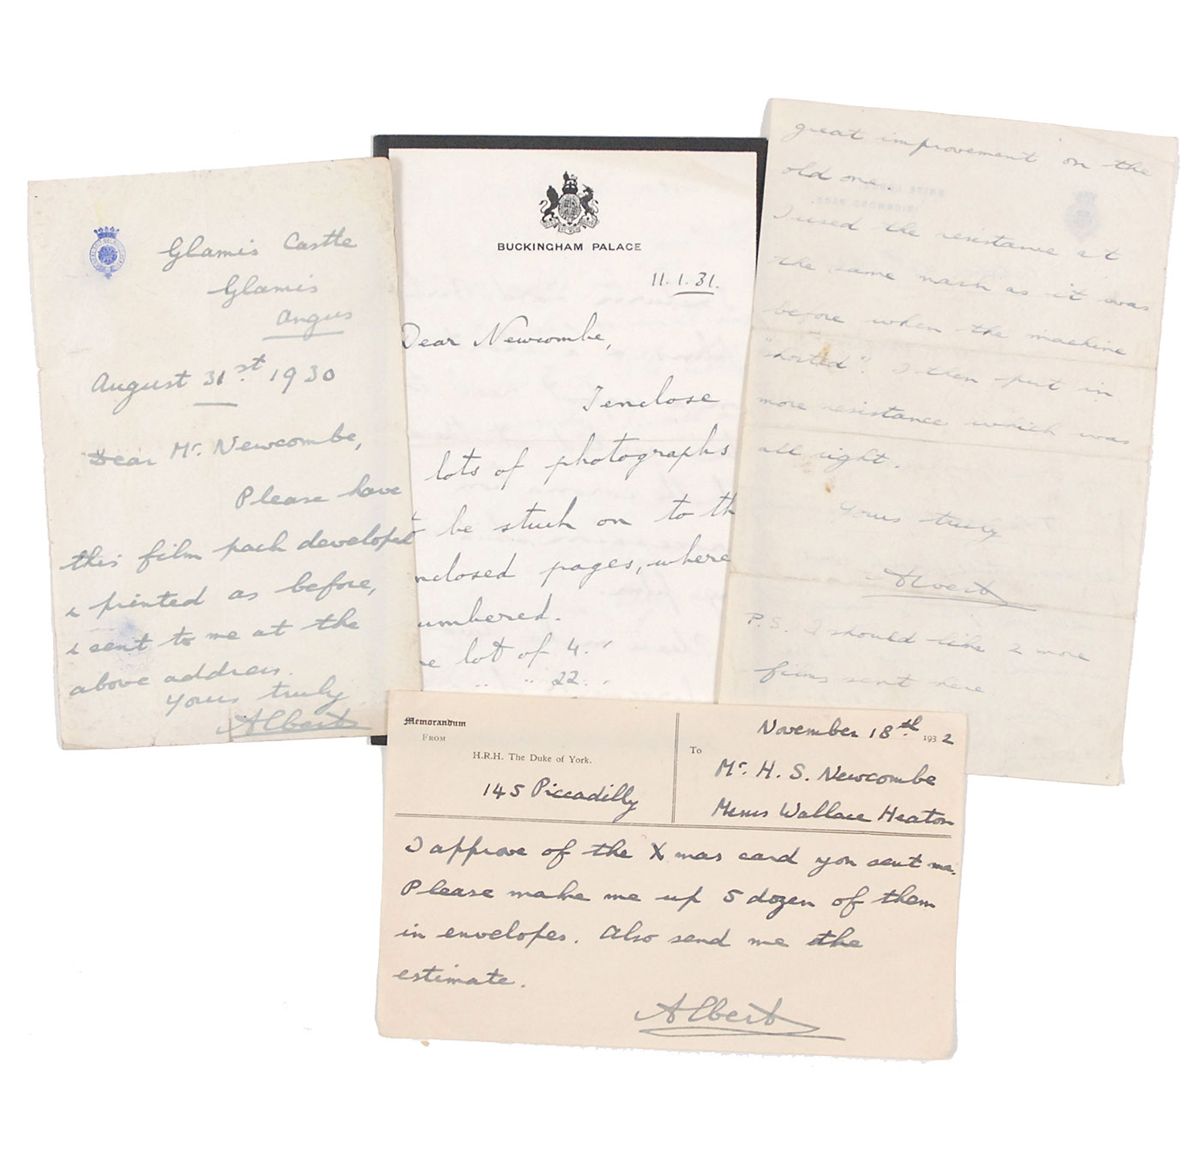 Glamis Castle
Glamis
Angus
August 31st. 1930
Dear Mr. Newcombe,
Please have
this film pack developed
& printed as before,
& sent to me at the
above address.
Yours truly
Albert
BUCKINGHAM PALACE
11.1.31.
Dear Newcombe,
I enclose
lots of photographs
be stuck on to th
nclosed pages, where
umbered.
e lot of 4.
" " " 22. "
great improvement on the
old one.
I used the resistance at
the same mark as it was
before when the machine
"shorted". I then put in
more resistance which was
all right.
Yours truly
Albert
P.S. I should like 2 more
films sent here
Memorandum
FROM
H.R.H. The Duke of York.
145 Piccadilly
November 18th. 1932
To
Mr. H. S. Newcombe
Messrs Wallace Heaton
I approve of the Xmas card you sent me.
Please make me up 5 dozen of them
in envelopes. Also send me the
estimate.
Albert